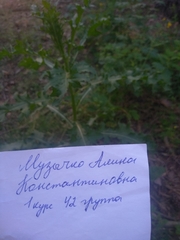 Музычко Алина
Константиновна
1 курс 42 группа